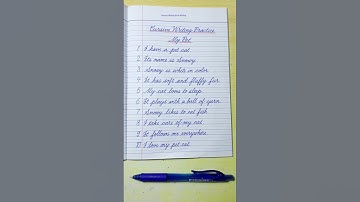 Cursive Writing Practice
My Pet
1 I have a pet cat
2 Its name is Snowy
3 Snowy is white in color
4 It has soft and fluffy fur
5 My cat loves to sleep
6 It plays with a ball of yarn
7 Snowy likes to eat fish
8 I take care of my cat
9 It follows me everywhere
10 I love my pet cat